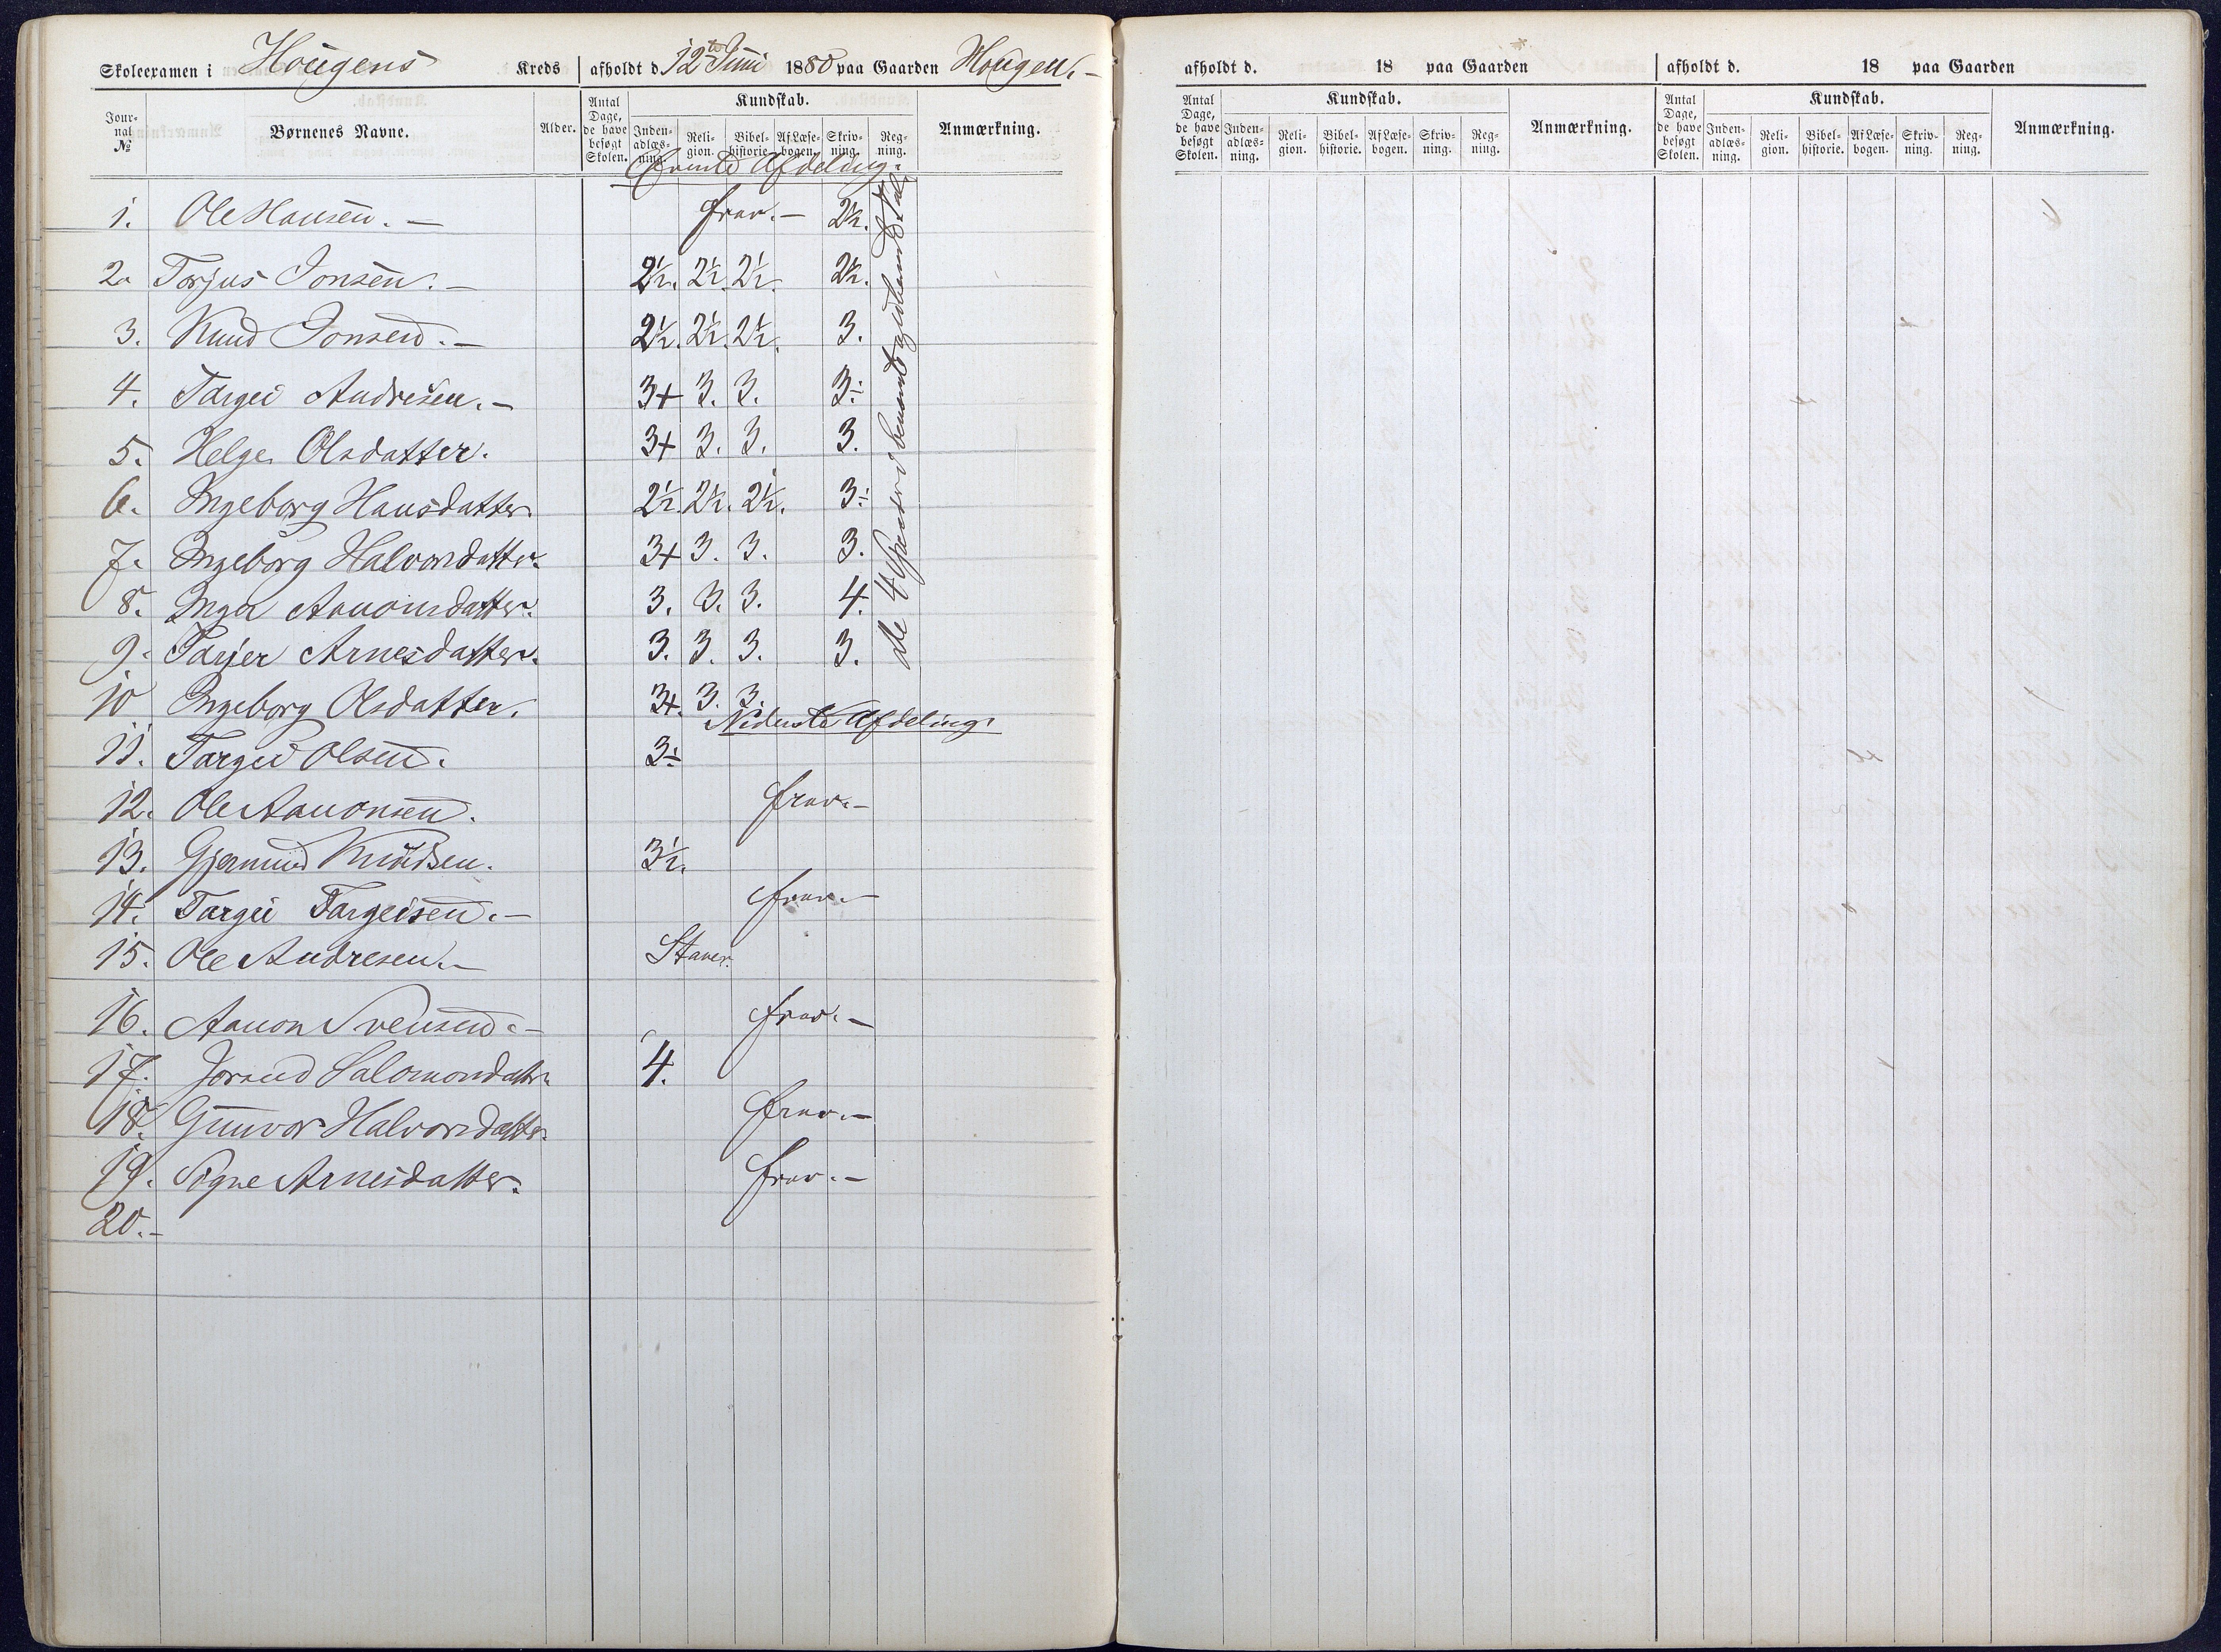 Skoleexamen i Hougens Kreds afholdt d. 12te Juni 1880 paa Gaarden Hougen. -
Jour-nal № Børnenes Navne. Alder. Antal Dage, de have besøgt Skolen. Kundskab. Inden-adlæs-ning. Reli-gion. Bibel-historie. Af Læse-bogen. Skriv-ning. Reg-ning. Anmærkning.
Øverste Afdeling.
1. Ole Hansen. - frav. - 2½.
2. Torjus Jonsen. - 2½. 2½. 2½. 2½.
3. Knud Jonsen. - 2½. 2½. 2½. 3.
4. Targei Andresen. - 3+ 3. 3. 3÷
5. Helge Olsdatter. 3+ 3. 3. 3.
6. Ingeborg Hansdatter. 2½. 2½. 2½. 3÷
7. Ingeborg Halvorsdatter. 3+ 3. 3. 3.
8. Inger Aanonsdatter. 3. 3. 3. 4.
9. Tarjer Arnesdatter. 3. 3. 3. 3.
10 Ingeborg Olsdatter. 3+. 3. 3.
de 4 Species i benævnte og ubenævnte Tal.
Nederste Afdeling.
11. Targei Olsen. 3÷
12. Ole Aanonsen. frav. -
13. Gjermund Knudsen. 3½.
14. Targei Targeisen. - frav. -
15. Ole Andresen. - Staver.
16. Aanon Svensen. - frav. -
17. Jorand Salomonsdatter 4.
18. Gunvor Halvorsdatter. frav. -
19. Signe Arnesdatter. frav. -
20. -
afholdt d. 18 paa Gaarden
Antal Dage, de have besøgt Skolen. Kundskab. Inden-adlæs-ning. Reli-gion. Bibel-historie. Af Læse-bogen. Skriv-ning. Reg-ning. Anmærkning.
afholdt d. 18 paa Gaarden
Antal Dage, de have besøgt Skolen. Kundskab. Inden-adlæs-ning. Reli-gion. Bibel-historie. Af Læse-bogen. Skriv-ning. Reg-ning. Anmærkning.